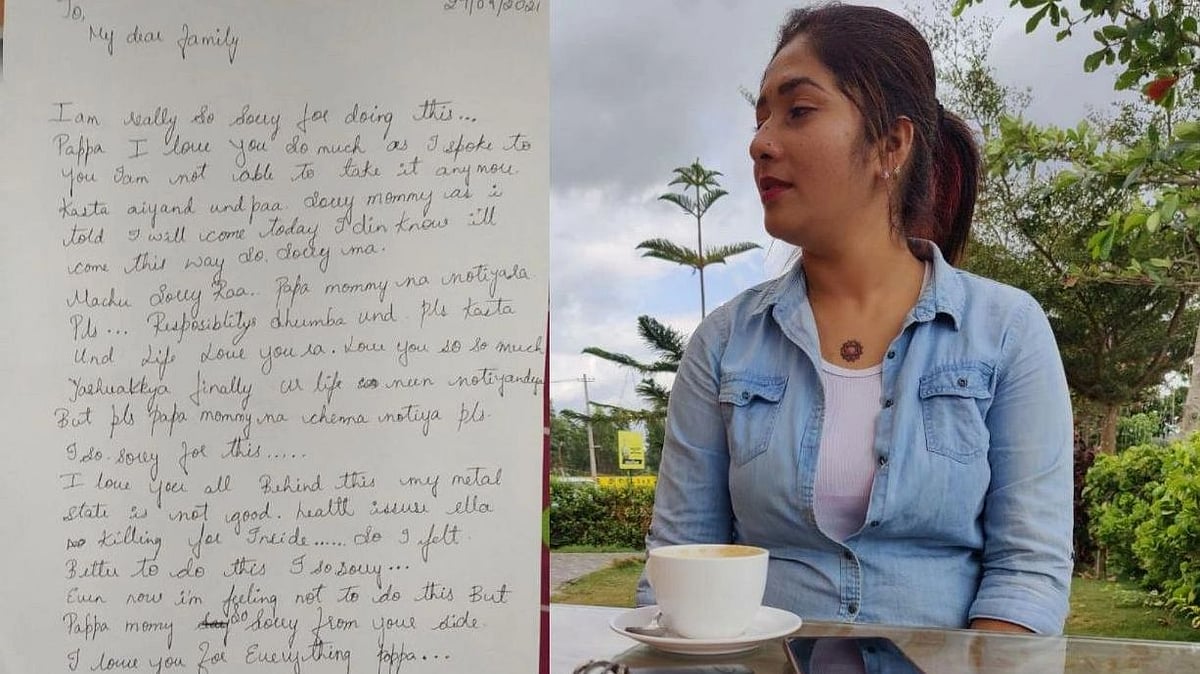 To,
My dear family
I am really so sorry for doing this...
Pappa I love you so much as I spoke to
you I am not able to take it anymore.
Kasta aiyand und paa. Sorry mommy as i
told I will come today I din know ill
come this way so. Sorry ma.
Machu Sorry Raa.. Papa mommy na notiyala
Pls... Resposiblitys dhumba und. pls Kasta
Und Life Love you ra. Love you so so much
finally ur life neen
But pls papa mommy na chenna notiya pls.
I so. sorry for this......
I love you all Behind this my metal
state is not good. health issuse ella
Killing for Inside...... So I felt
Better to do this I so sorry...
Even now i'm feeling not to do this But
Pappa momy so sorry from your side.
I love you for Everything Pappa...